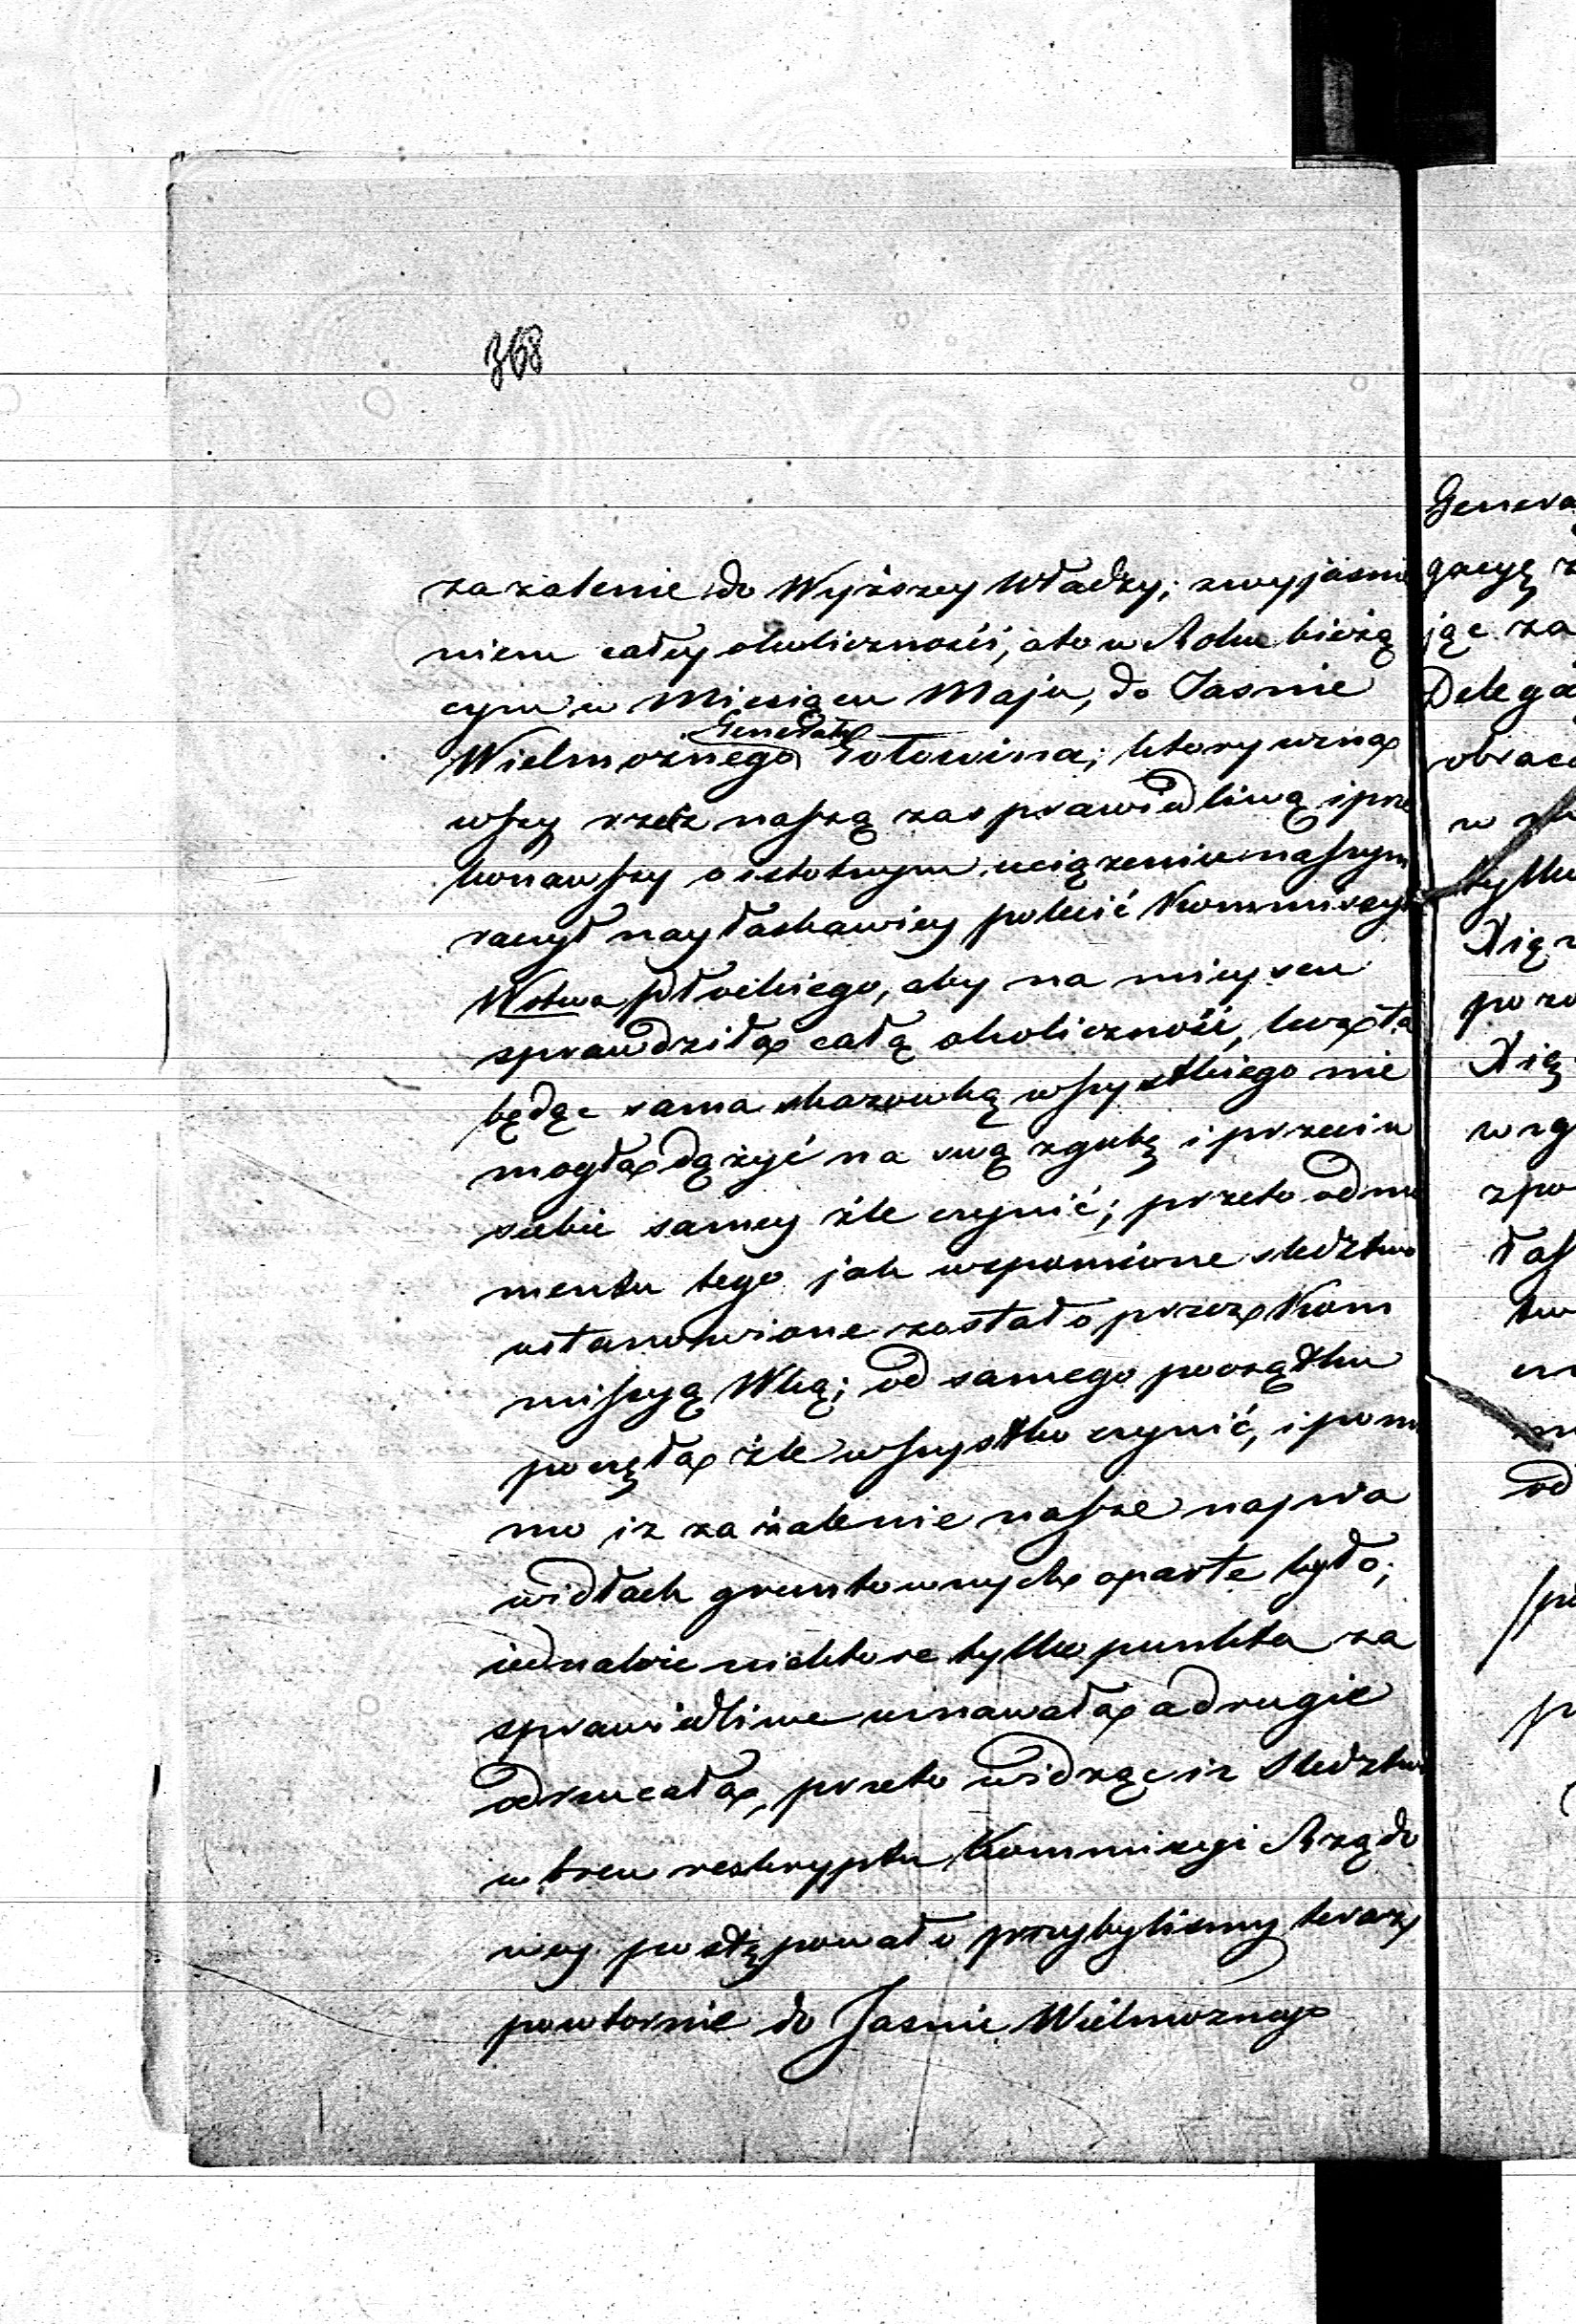 368
zazalenie do Wyższey Władzy; z wyjaśnie
niem całey okoliczności, a to w Roku bieżą
cym w Miesiącu Maju, do Jasnie
Generała
Wielmoznego Gołowina; ktory uzna
wszy rzecz naszą za sprawiedliwą i prze
konawszy o istotnym uciążeniu naszym
raczył nayłaskawiey polecić Kommissyi
Wstwa Płockiego, aby na mieyscu
sprawdziła całą okoliczność, lecz ta
będąc sama skazowką wszystkiego nie
mogła dążyć na swą zgubę i przeciw
siebie samey źle czynić; przeto od mo
mentu tego jak wspomione sledztwo
ustanowione zostało przez Kom
missyą Wką; od samego początku
poczęła źle wszystko czynić, i pomi
mo iz zażalenie nasze na pra
widłach gruntownych oparte było;
iednakże niektore tylko punkta za
sprawiedliwe uznawała a drugie
odrzucała, przeto widząc iz sledztwo
w brew reskryptu Kommissyi Rządo
wey postępowało przybylismy teraz
powtornie do Jasnie Wielmoznego
Genera
gacyę z
jąc za
Delega
obrac
tylko
Xią
pozo
Xię
zpo
od